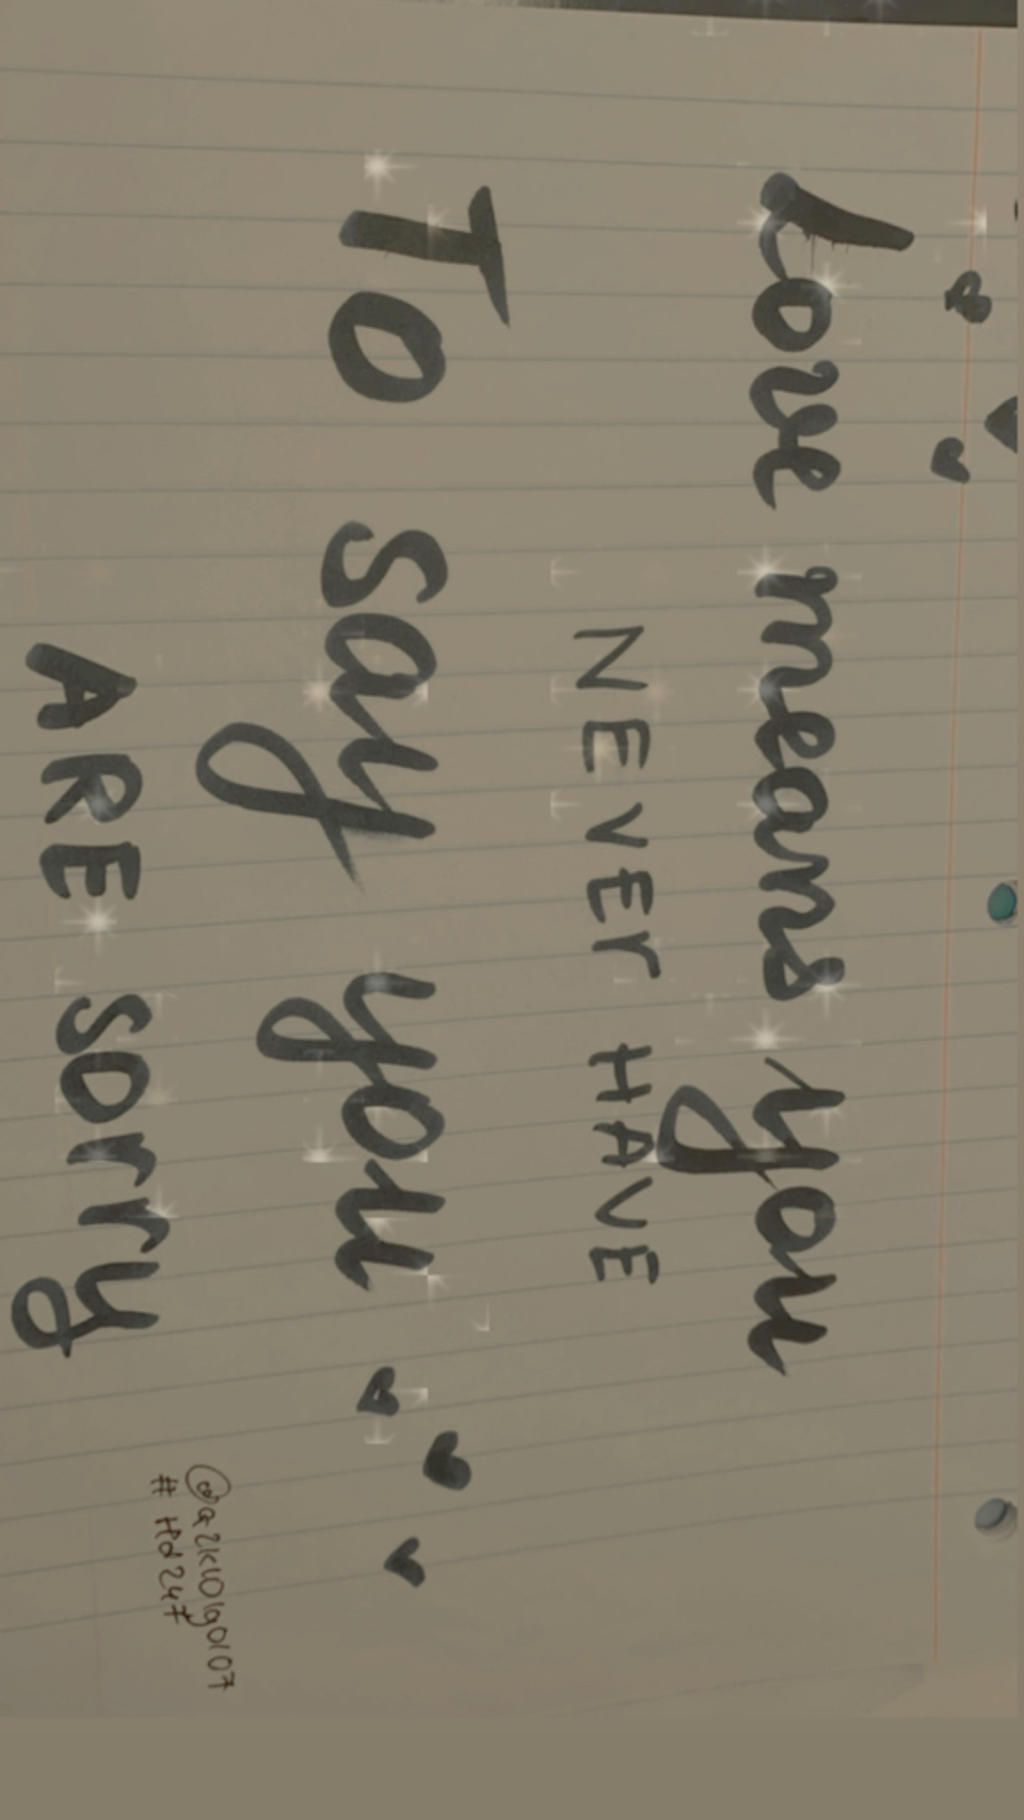 Love means you
NEVER HAVE
TO say you
ARE sorry
# Hd247